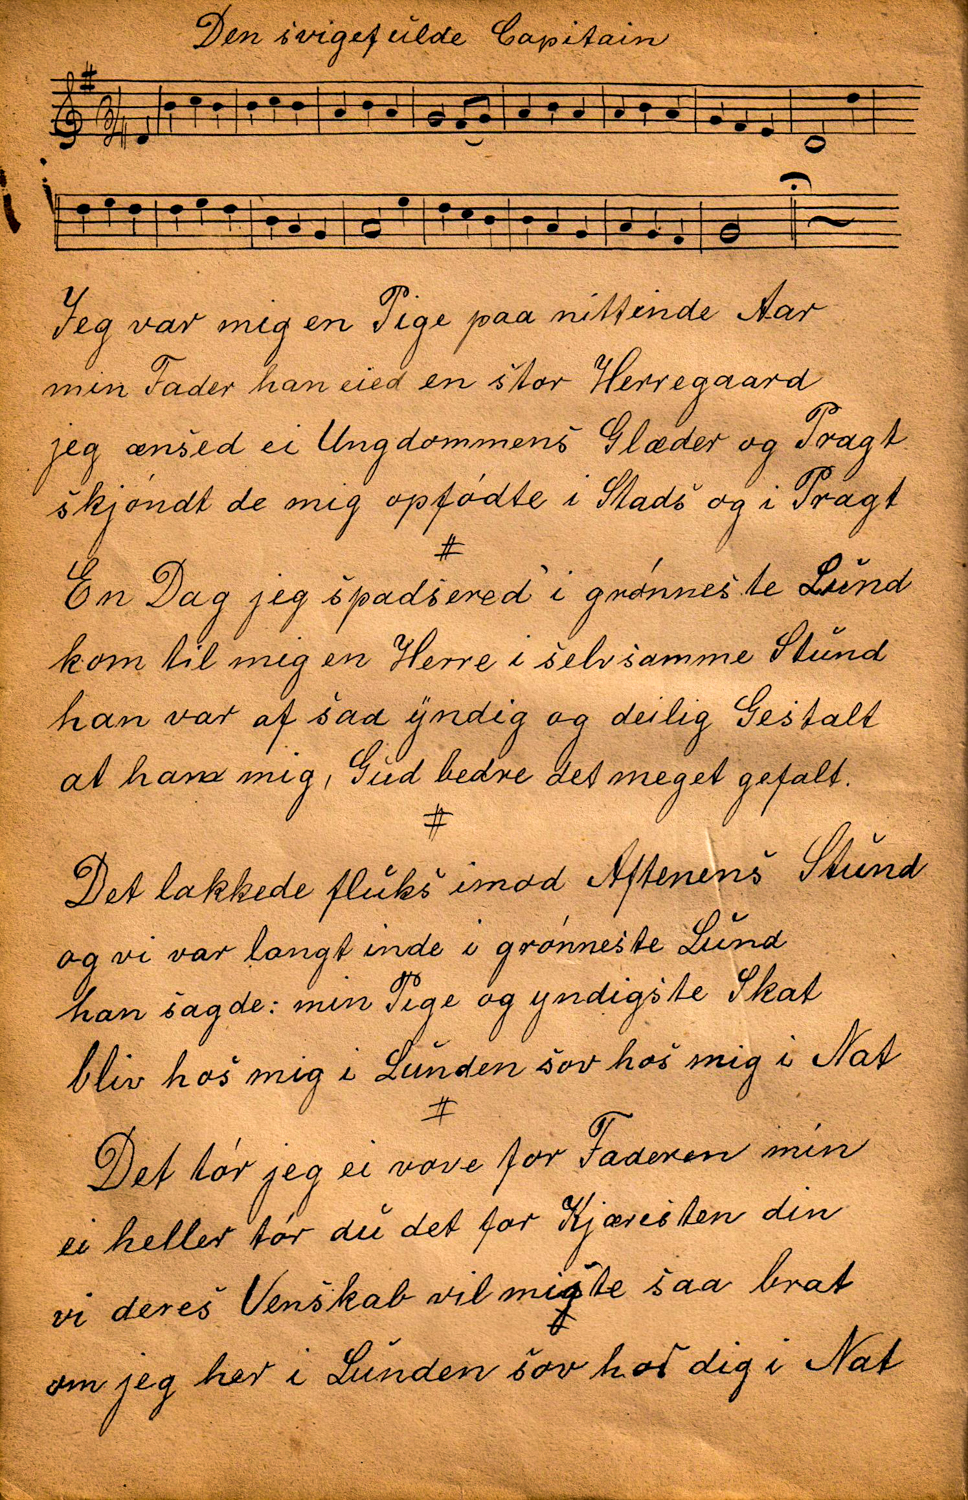 Den svigefulde Capitain
3/4
Jeg var mig en Pige paa nittende Aar
min Fader han eied en stor Herregaard
jeg ænsed ei Ungdommens Glæder og Pragt
skjöndt de mig opfödte i Stads og i Pragt
#
En Dag jeg spadsered i grönneste Lund
kom til mig en Herre i selvsamme Stund
han var af saa yndig og deilig Gestalt
at han mig, Gud bedre det meget gefalt.
#
Det lakkede fluks imod Aftenens Stund
og vi var langt inde i grönneste Lund
han sagde: min Pige og yndigste Skat
bliv hos mig i Lunden sov hos mig i Nat
#
Det tör jeg ei vove for Faderen min
ei heller tör du det for Kjæristen din
vi deres Venskab vil miste saa brat
om jeg her i Lunden sov hos dig i Nat